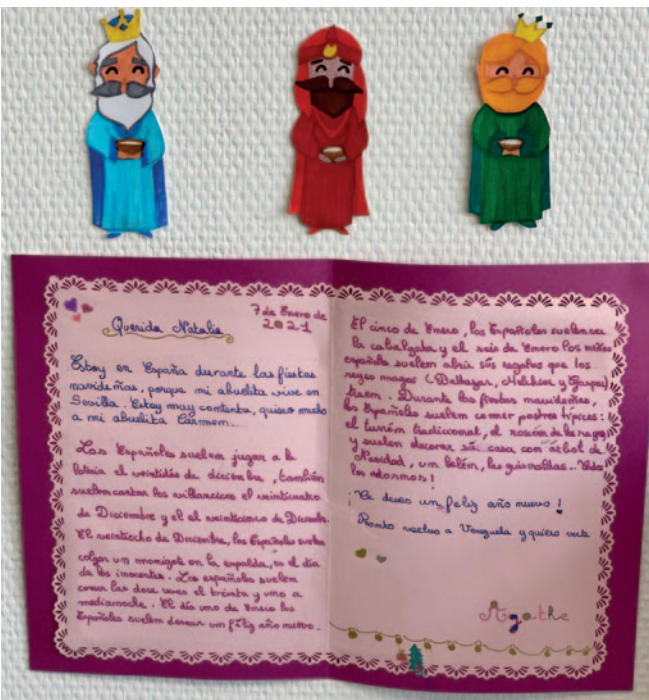 7 de Enero de
2021
Querida Natalia
Estoy en España durante las fiestas
navideñas, porque mi abuelita vive en
Sevilla. Estoy muy contenta, quiero mucho
a mi abuelita Carmen.
Los Españoles suelen jugar a la
loteria el veintidós de diciembre, también
suelen cantar los villancicos el veinticuatro
de Diciembre y el el veinticinco de Diciembre.
El veintiocho de Diciembre, los Españoles suelen
colgar un monigote en la espalda, es el día
de los inocentes. Los españoles suelen
comer las doce uvas el treinta y uno a
medianoche. El día uno de Enero los
Españoles suelen desear un feliz año nuevo.
El cinco de Enero, los Españoles suelen ver
la cabalgata y el seis de Enero los niños
españoles suelen abrir sus regalos que los
reyes magos (Baltasar, Melchior y Gaspar)
traen. Durante las fiestas navideñas,
los Españoles suelen comer postres típicos:
el turrón tradicional, el roscón de los reyes
y suelen decorar su casa con árbol de
Navidad, un belén, las guirnaldas...
los adornos!
¡Te deseo un feliz año nuevo!
Pronto vuelvo a Venezuela y quiero verte
Agathe